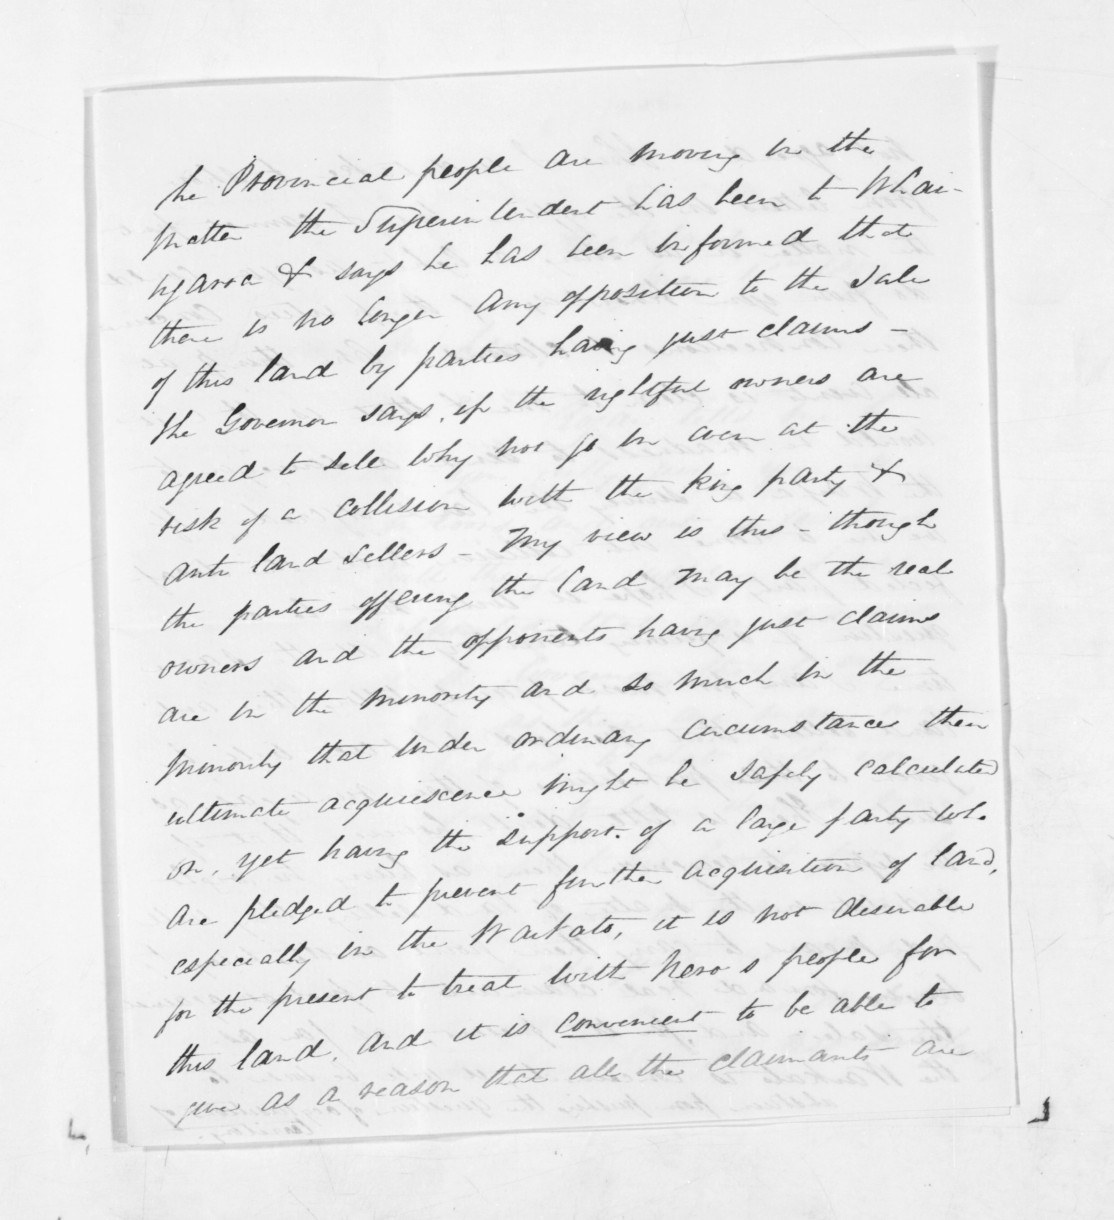 he Provincial people are moving in the
matter the Superintendent has been to Whai-
ngaroa & says he has been informed that
there is no longer any opposition to the sale
of this land by parties having just claims -
the Governor says, if the rightful owners are
agreed to sell why not go in even at the
risk of a collision with the king party &
anti land sellers - My view is this - though
the parties offering the land may be the real
owners and the opponents having just claims
are in the minority and so much in the
minority that under ordinary circumstances their
ultimate acquiescence might be safely calculated
on, yet having the support of a large party wh.
are pledged to prevent further acquisition of land,
especially in the Waikato, it is not desirable
for the present to treat with Nero's people for
this land, and it is convenient to be able to
give as a reason that all the claimants are